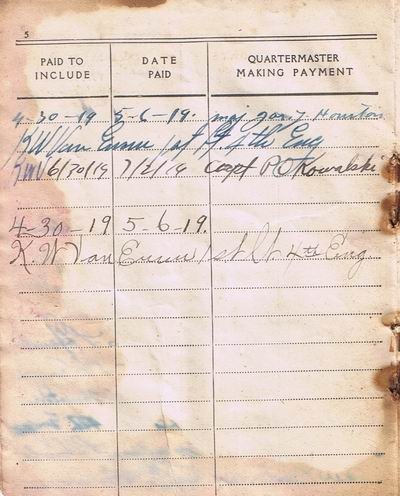 5
PAID TO INCLUDE
DATE PAID
QUARTERMASTER MAKING PAYMENT
4-30-19 5-6-19. Maj Houston
K W Van 1st Lt 4th Eng
6/30/19 7/2/19 Capt P O Kowalski
4-30-19 5-6-19.
K. W Van 1st Lt. 4th Eng.